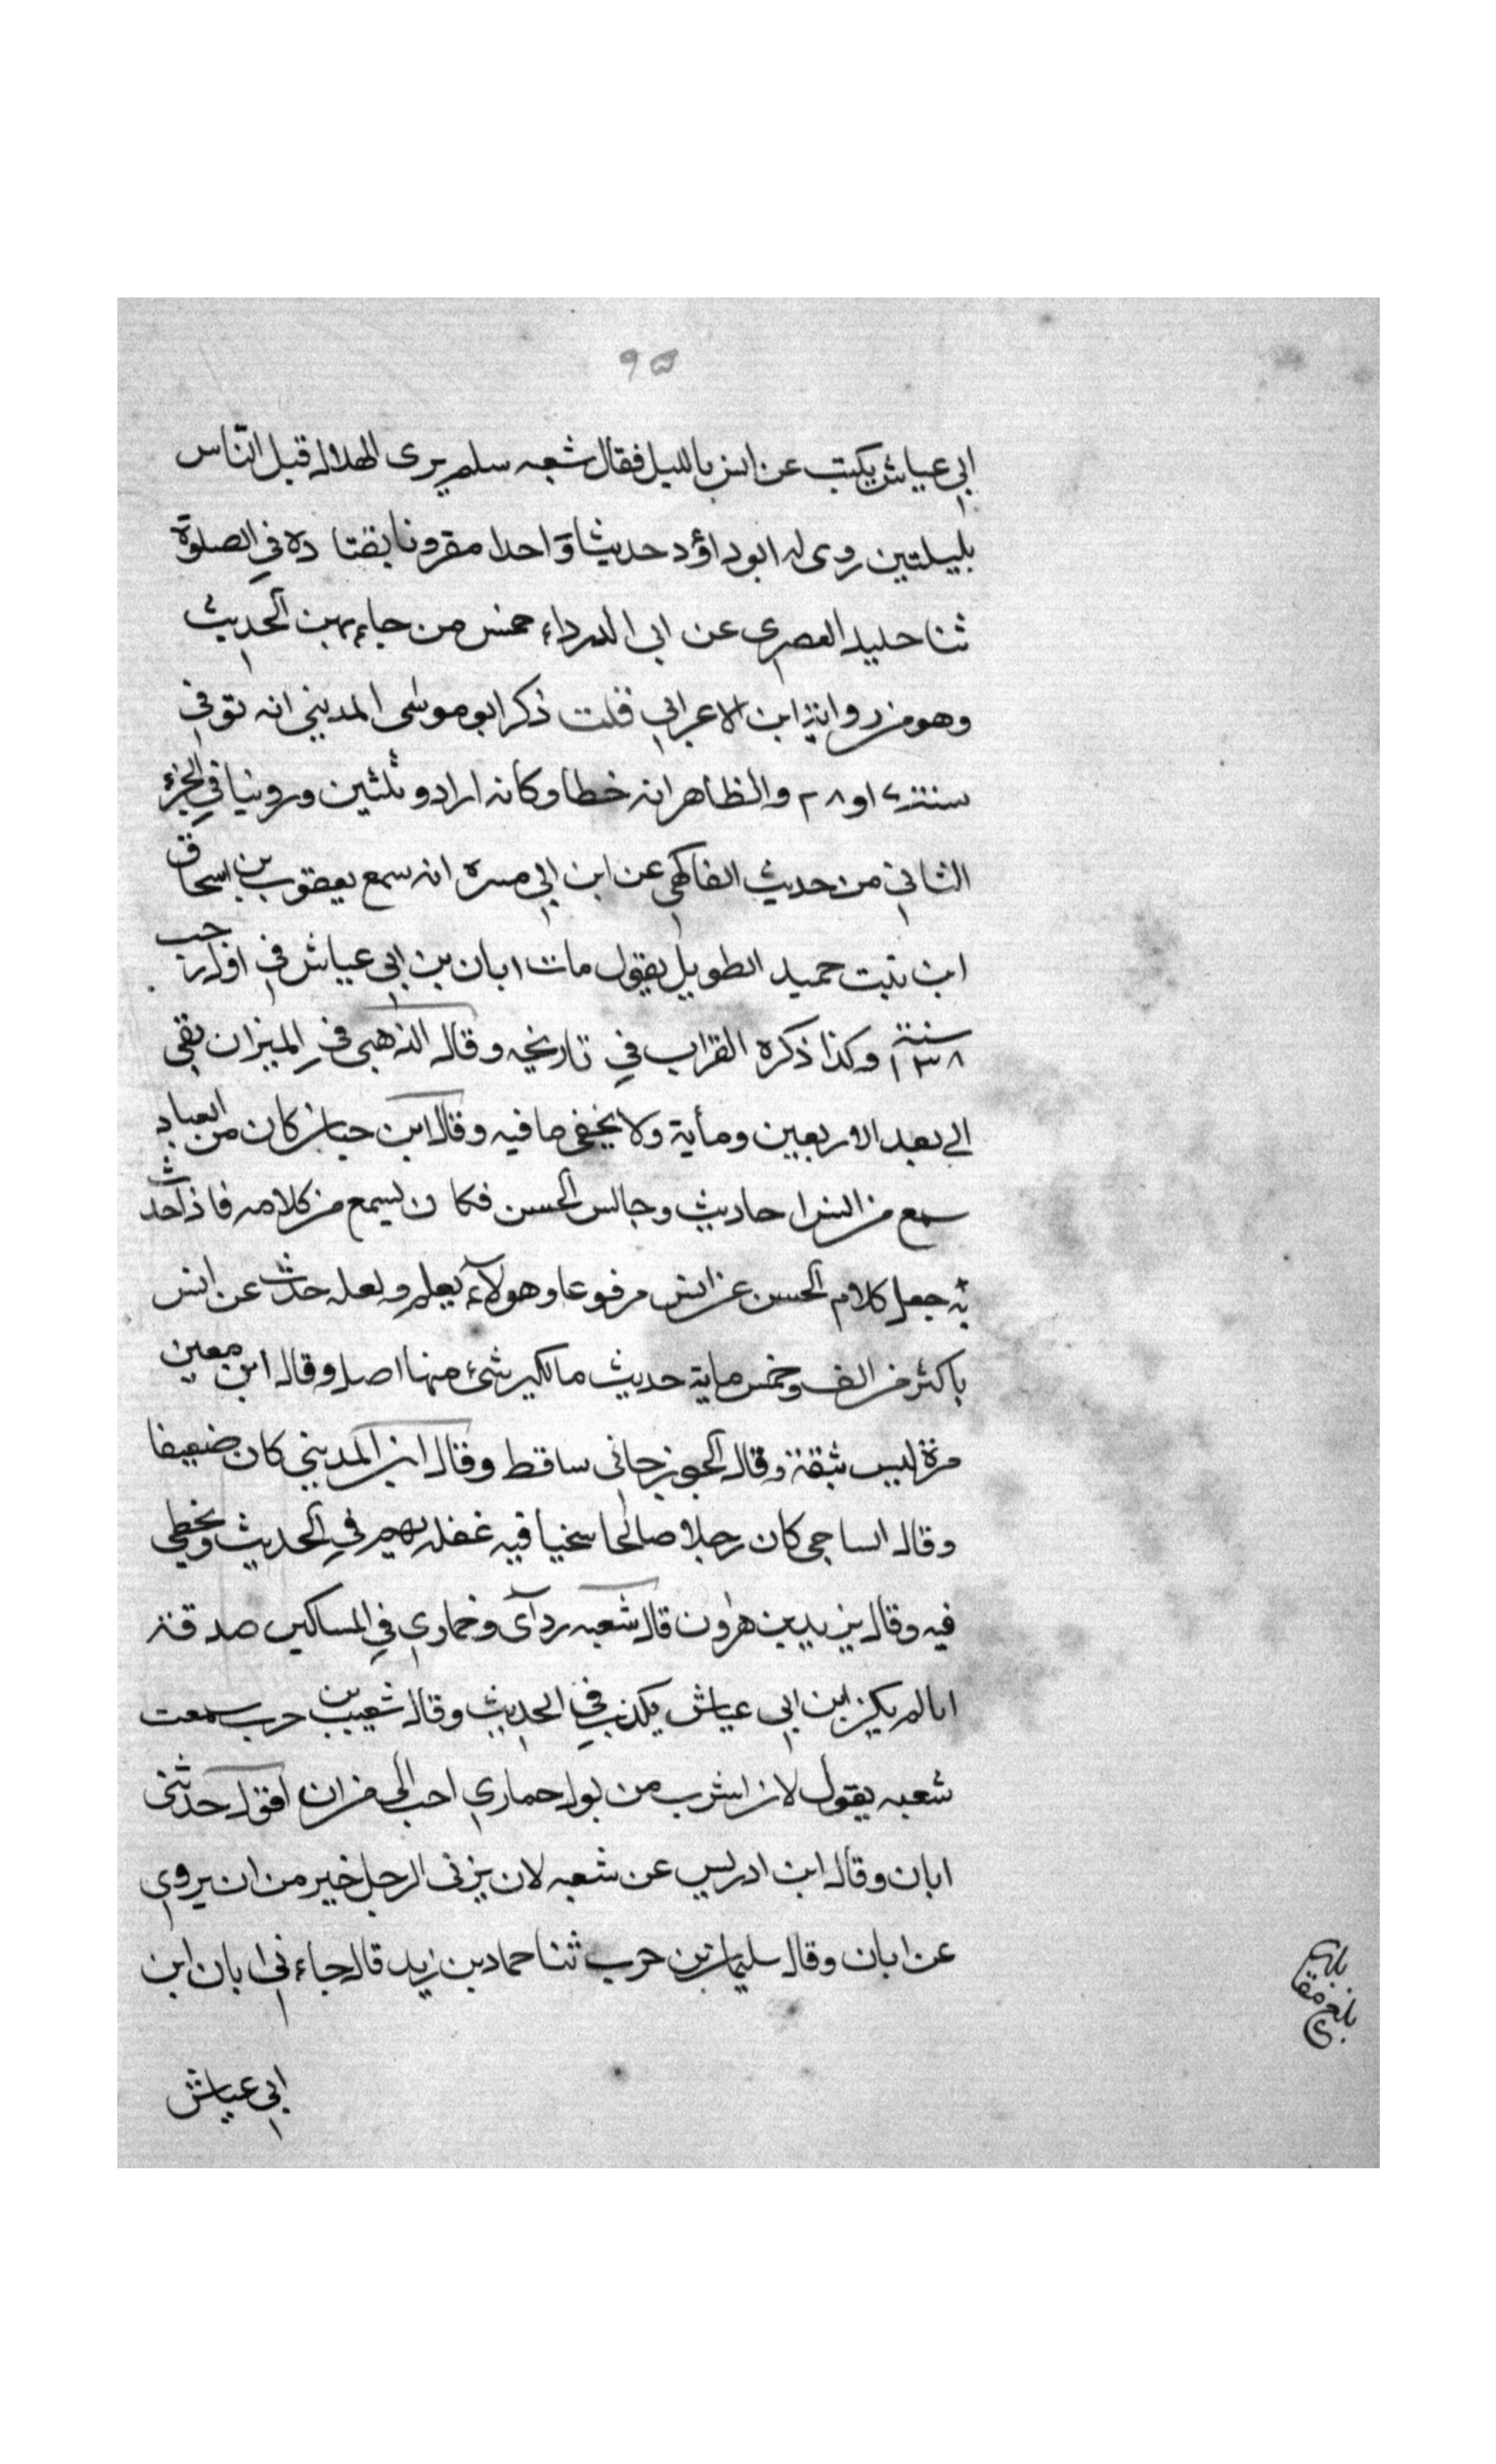 ٩٥
ابي عياش يكتب عن انس بالليل فقال شعبه سلم يرى الهلال قبل الناس
بليلتين روى له ابوداؤد حديثا واحدا مقرونا بقتادة في الصلوة
ثنا خليد العصري عن ابي الدرداء خمس من جاء بهن الحديث
وهو من رواية ابن الاعرابي قلت ذكر ابو موسى المديني انه توفي
سنة ٢٧ او ٢٨ والظاهر انه خطا وكانه اراد وثلثين وروينا في الجزء
الثاني من حديث الفاكهي عن ابن ابي مسرة انه سمع يعقوب بن اسحاق
ابن بنت حميد الطويل يقول مات ابان بن ابي عياش في اول رجب
سنة ١٣٨ وكذا ذكره القراب في تاريخه وقال الذهبي في الميزان بقي
الى بعد الاربعين ومأية ولا يخفى ما فيه وقال ابن حبان كان من العباد
سمع من انس احاديث وجالس الحسن فكان يسمع من كلامه فاذا حدث
به جعل كلام الحسن عن انس مرفوعا وهو لا يعلم ولعله حدث عن انس
باكثر من الف وخمس ماية حديث ما لكبير شئ منها اصل وقال ابن معين
مرة ليس بثقة وقال الجوزجاني ساقط وقال ابن المديني كان ضعيفا
وقال الساجي كان رجلا صالحا سخيا فيه غفلة يهم في الحديث ويخطي
فيه وقال يزيد بن هرون قال شعبه ردآى وخماري في المساكين صدقة
ان لم يكن ابن ابي عياش يكذب في الحديث وقال شعيب بن حرب سمعت
شعبه يقول لان اشرب من بول حماري احب الي من ان اقول حدثني
ابان وقال ابن ادريس عن شعبه لان يزني الرجل خير من ان يروي
عن ابان وقال سليمان بن حرب ثنا حماد بن زيد قال جاءني ابان ابن
ابي عياش
بلغ مقا